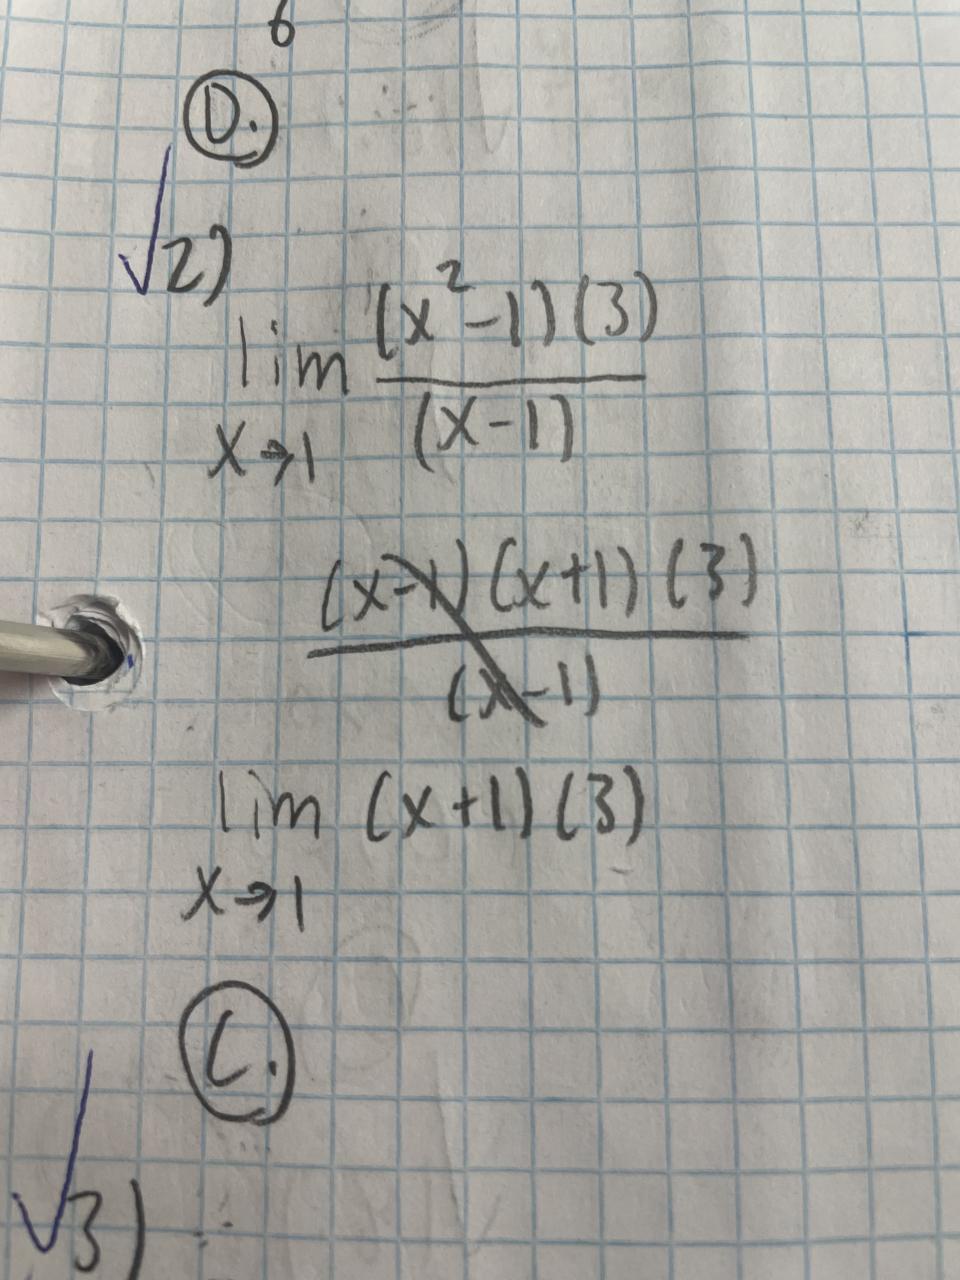 6
D.
√2)
lim (x²-1)(3)
x→1 (x-1)
(x-1)(x+1)(3)
(x-1)
lim (x+1)(3)
x→1
C.
√3)